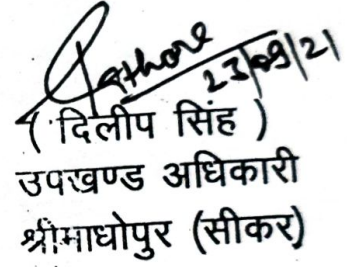 Rathore
23/09/21
( दिलीप सिंह )
उपखण्ड अधिकारी
श्रीमाधोपुर (सीकर)